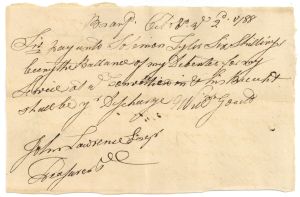 1788
Sir pay unto Tyler Six Shillings
being the Ballance of my Debenter for my
Service at a Convention this Receipt
shall be yr Discharge Willm Gould
John Lawrence Esqr
Treasurer